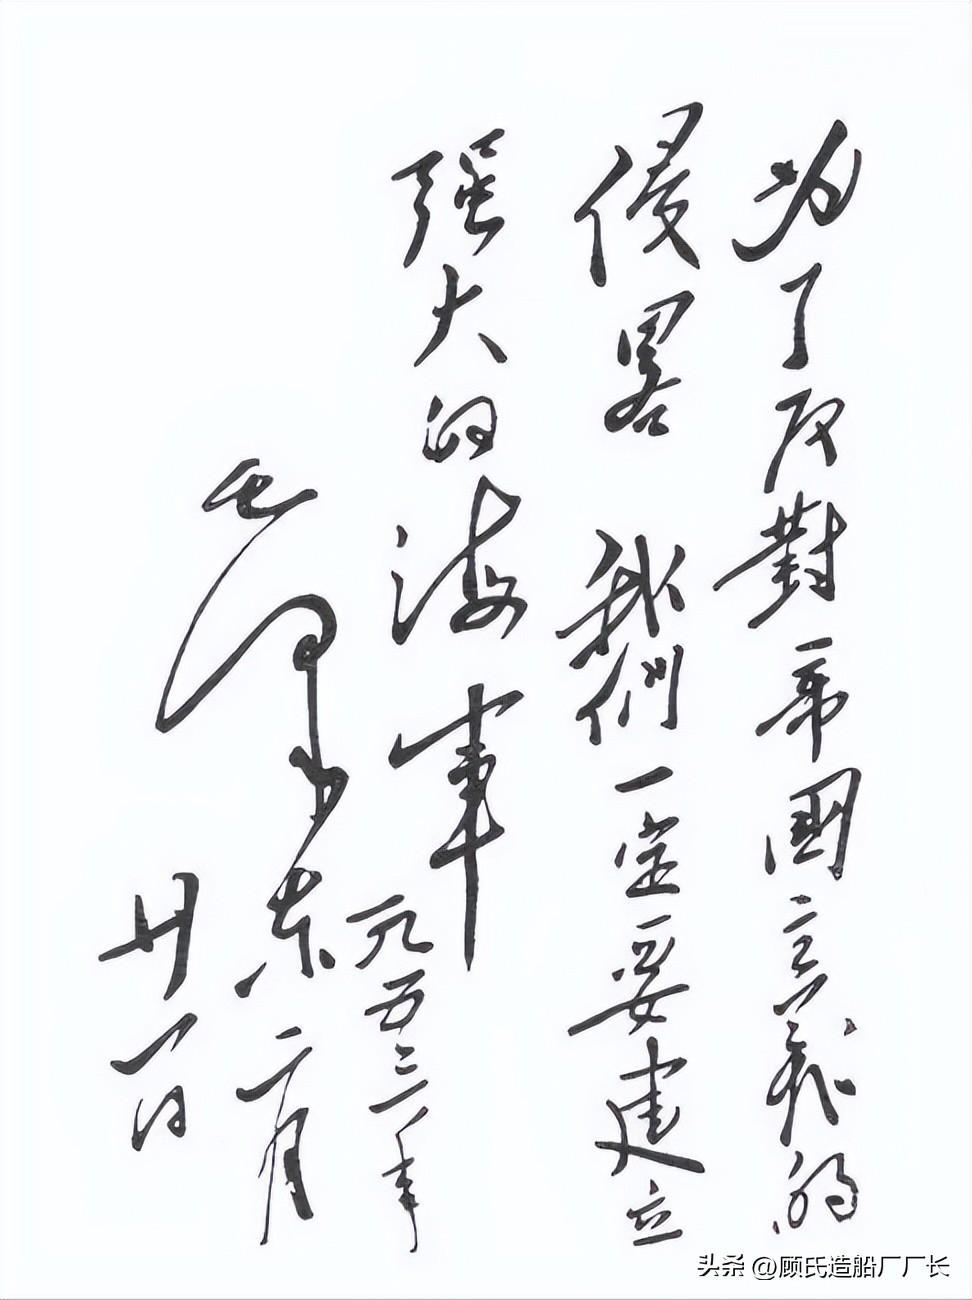 为了反對帝國主義的
侵畧 我們一定要建立
强大的海軍
毛泽东
一九五三年
二月
廿一日
头条 @顾氏造船厂厂长